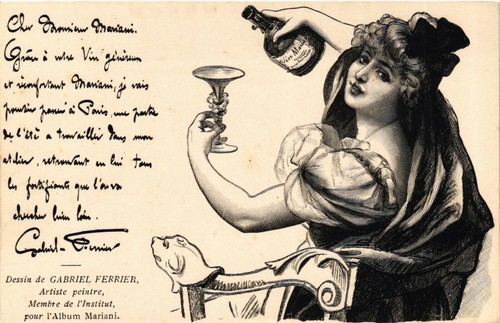 Cher Monsieur Mariani.
Grâce à votre Vin généreux
et réconfortant Mariani, je vais
pouvoir passer à Paris, une partie
de l'été a travailler dans mon
atelier, retrouvant en lui tous
les fortifiants que l'on va
chercher bien loin.
Gabriel Ferrier
Dessin de GABRIEL FERRIER,
Artiste peintre,
Membre de l'Institut,
pour l'Album Mariani.
Vin Mariani